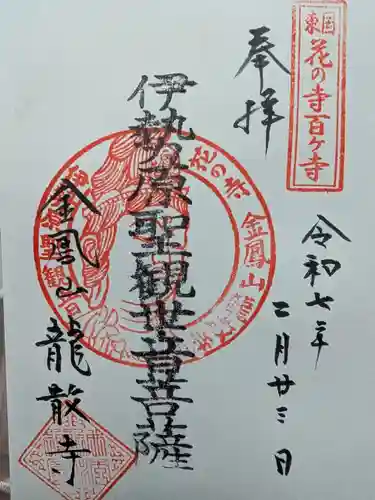 東国花の寺百ヶ寺
奉拝
令和七年
二月廿三日
伊勢原聖観世音菩薩
金鳳山
龍散寺
花の寺
金鳳山龍
聖観